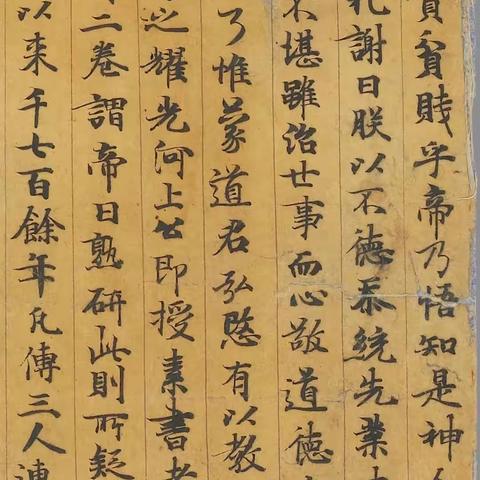 貴貧賤乎帝乃悟知是神人
礼謝曰朕以不德忝統先業
不堪雖治世事而心敬道德
了惟蒙道君弘愍有以教
之耀光河上公即授素書老
二卷謂帝曰熟研此則所疑
以来千七百餘年凡傳三人連